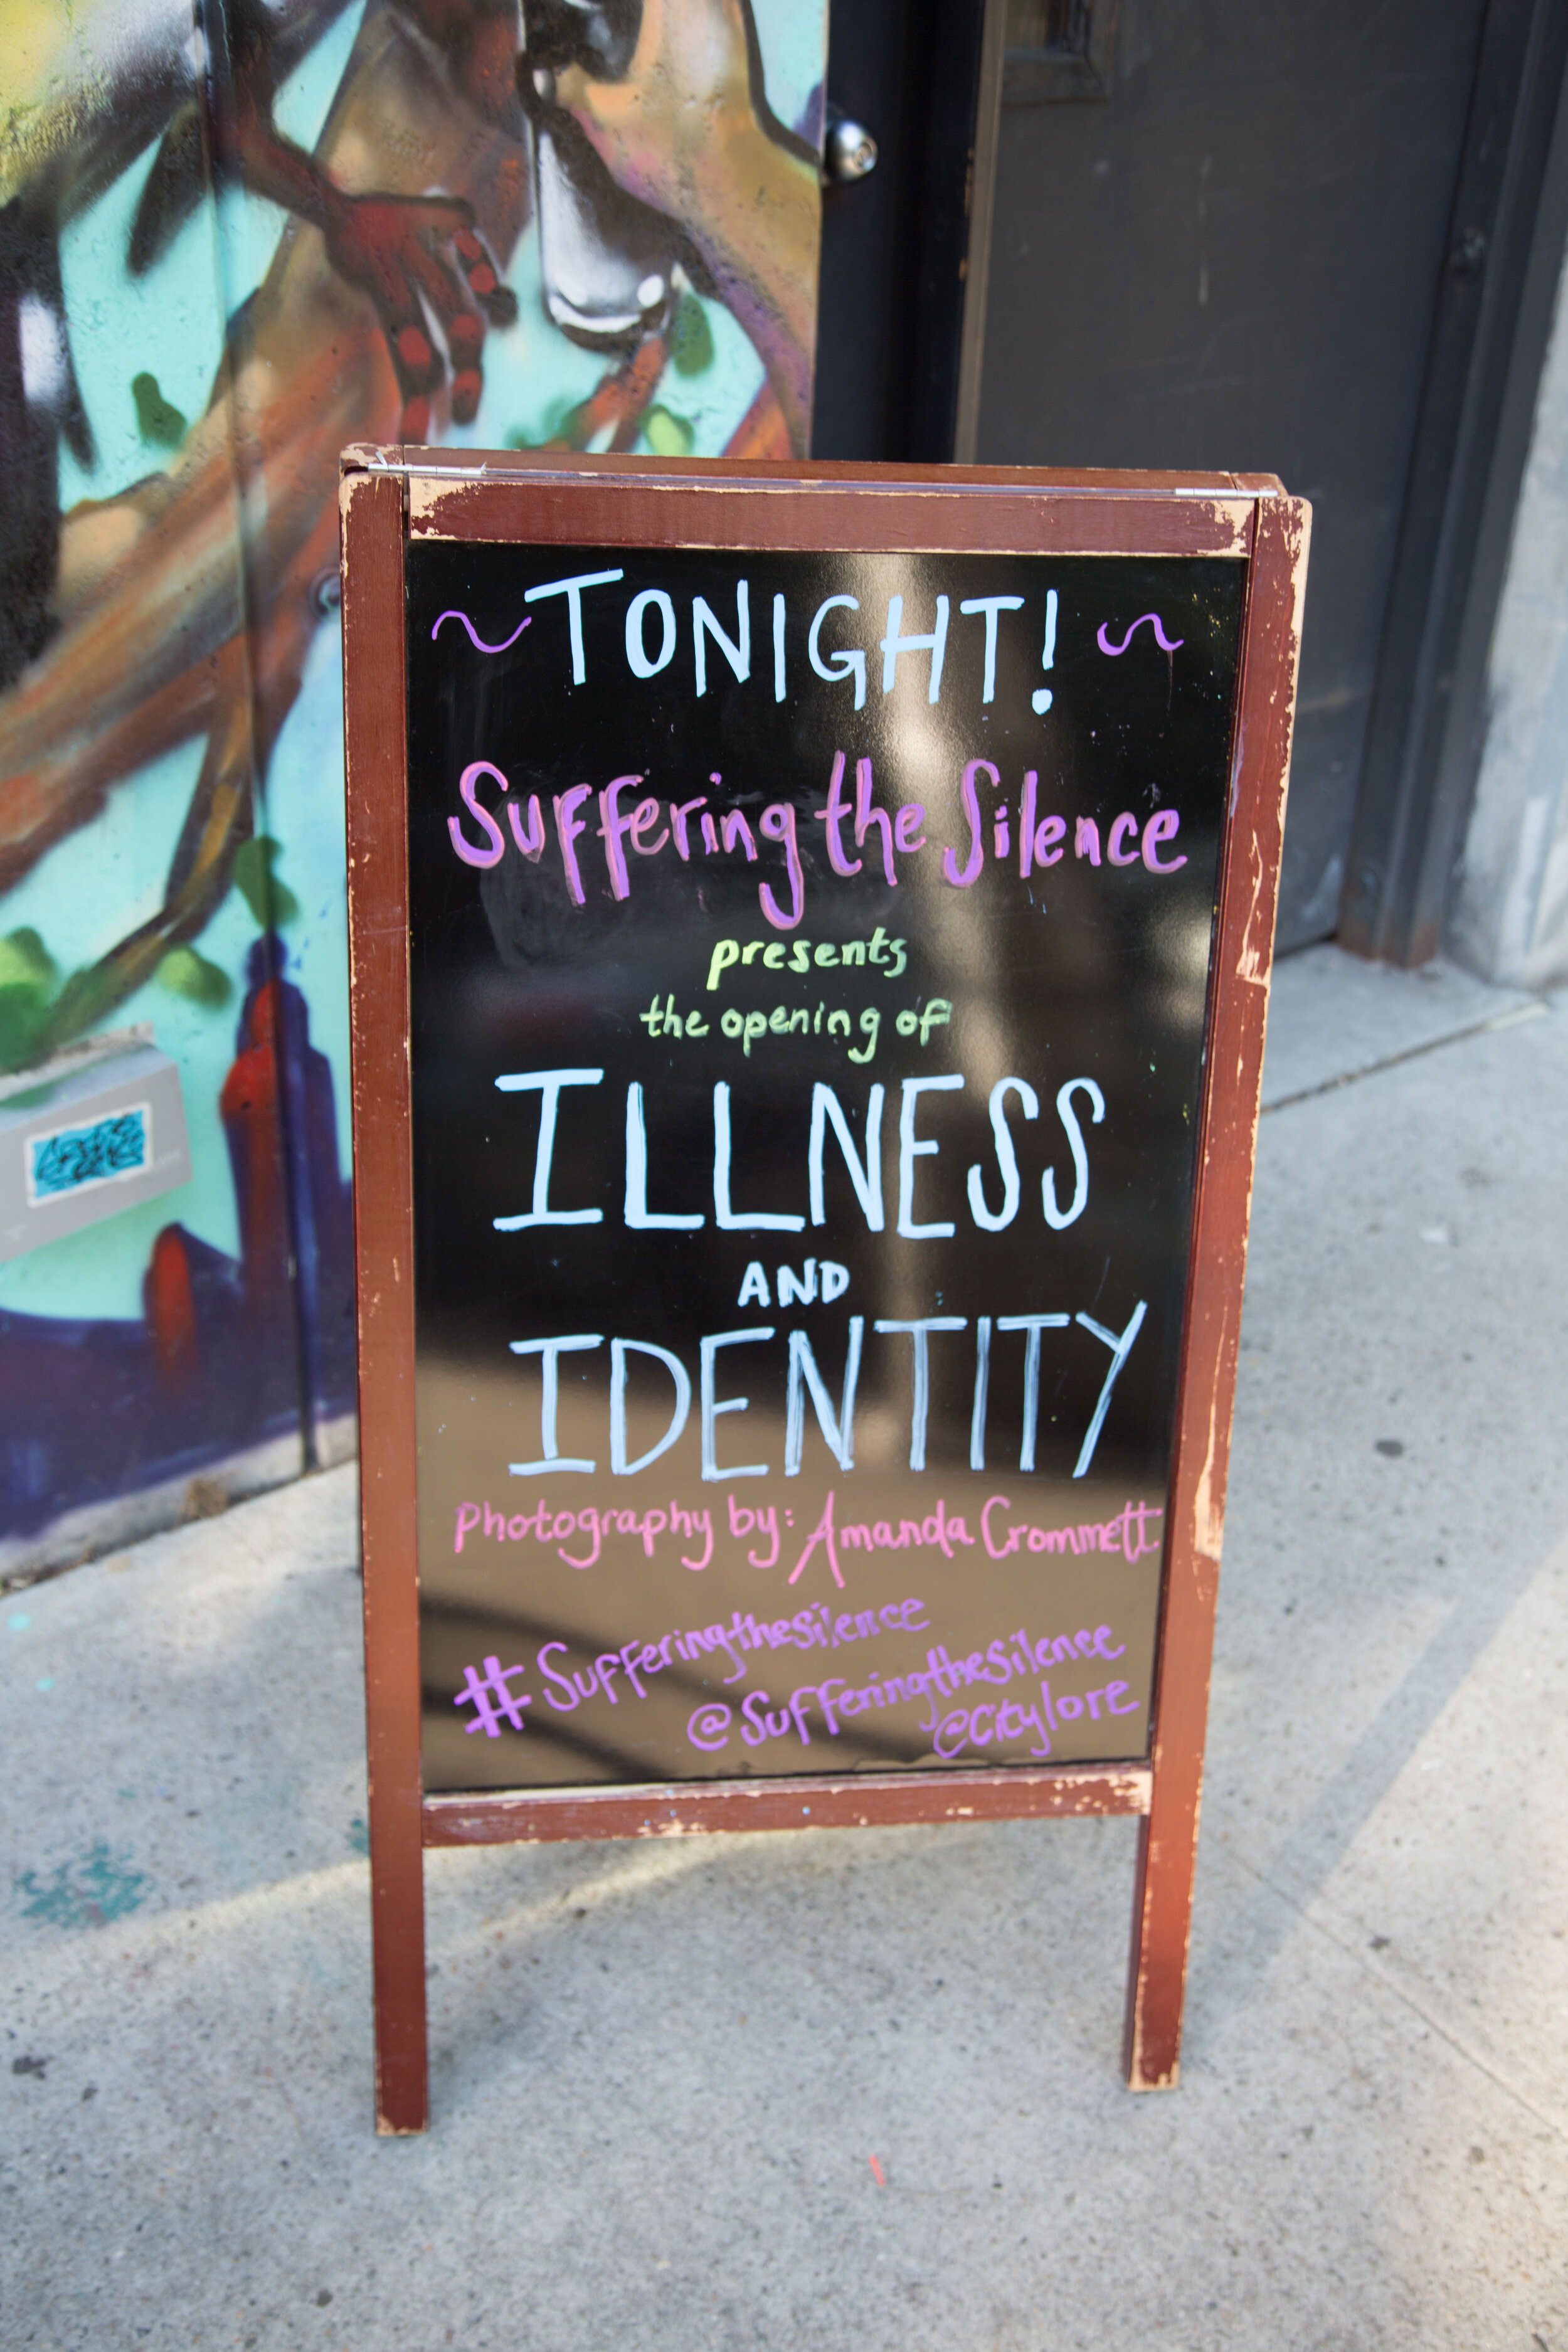 ~TONIGHT!~
Suffering the Silence
presents
the opening of
ILLNESS
AND
IDENTITY
Photography by: Amanda Crommett
#Sufferingthesilence
@Sufferingthesilence
@Citylore